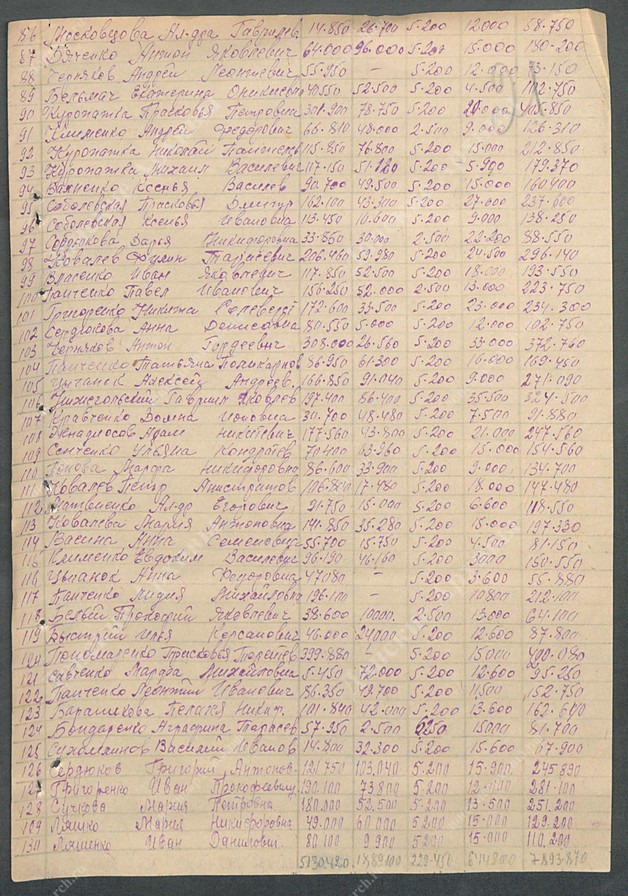 86 Московцова Ал-дра Гаврилов 14.850 26.700 5.200 12000 58.750
87 Дяченко Антон Яковлевич 64.000 96.000 5.200 15.000 180.200
88 Андрей Леонтиевич 55.950 — 5.200 12.000 73.150
89 Бельмач Екатерина 40550 52.500 5.200 4.500 102.750
90 Куропатка Прасковья Петровна 301.900 78.750 5.200 20.000
91 Клименко Андрей Федорович 66.810 48.000 2.500 9.000 126.310
92 Куропатка Николай 115.850 76.800 5.200 15.000 212.850
93 Куропатка Михаил Василевич 117.150 5.200 5.900 179.370
94 Ксенья Василев 90.700 49.500 5.200 15.000 160400
95 Соболевская Прасковья Дмитур 162.100 5.200 27.600
96 Соболевская Ксенья Ивановна 113.450 10.600 5.200 9.000 138.250
97 Дарья Никифоровна 33.850 30.000 2.500 22.200 88.550
98 Ковалев Филип 206.460 59.980 5.200 24.500 296.140
99 Власенко Иван Яковлевич 117.850 52.500 5.200 18.000 193.550
100 Панченко Павел Иванович 156.250 52.000 2.500 13.000 223.750
101 Григоренко Никита 172.600 33.500 5.200 23.000 234.300
102 Сердюкова Анна Денисовна 80.550 5.000 5.200 12.000 102.750
103 Черняков Антон Гордеевич 308.000 26.560 5.200 33.000 372.760
104 Панченко Татьяна Поликарпов 86.950 61.300 5.200 16.000 169.450
105 Цыганок Алексей Андреев. 166.850 91.040 5.200 9.000 271.090
106 Гаврил Яковлев 197.400 86.400 5.200 35.500 324.500
107 Кравченко Домна 30.700 48.480 5.200 7.500 91.880
108 Адам Никитевич 177.560 43.800 5.200 21.000 247.560
109 Сенченко Ульяна Кондратев 70.400 63.960 5.200 15.000 154.560
110 Попова Марфа Никифоровна 86.600 33.900 5.200 9.000 134.700
111 Ковалев Петр 106.800 17.480 5.200 18.000 147.480
112 Матвиенко Ал-др Егорович 91.750 15.000 5.200 6.600 118.550
113 Ковалева Мария Антоновна 141.850 35.280 5.200 15.000 197.330
114 Васина Анна Семенович 55.700 15.750 5.200 4.500 81.150
115 Клименко Евдоким Василевич 96.190 46.160 5.200 3000 150.550
116 Цыганок Анна Федоровна 47080 — 5.200 3.600 55.880
117 Панченко Лидия Михайловна 196.100 — 5.200 10800 212.100
118 Белый Прокофий Яковлевич 38.600 10000. 2.500 13.000 64.100
119 Быстрий Илья 46.000 24000 5.200 12.600 87.800
120 Пономаленко Прасковья 399.880 — 5.200 15000
121 Савченко Марфа Михайловна 5.450 72.000 5.200 12.600 95.250
122 Панченко Леонтий Иванович 86.350 49.700 5.200 11500 152.750
123 Барашкова Пелагея Никит. 101.840 42.000 5.200 13.600 162.640
124 Бондаренко Аграфина Тарасев 57.950 2.500 6250 15000 81.700
125 Сухомлинов Василий Иванов 14.800 32.300 5.200 15.600 67.900
126 Сердюков Григорий Антонов. 121.750 103.040 5.200 15.900 245890
127 Григоренко Иван Прокофьевич 190.100 73.800 5.200 12.000 281.100
128 Сичкова Мария Петровна 180.000 52.500 5.200 13.500 251.200
129 Ляшко Мария Никифоровна 49.000 60.000 5.200 15.000 129.200
130 Ляшенко Иван Данилович 80.100 9.900 5.200 15.000 110.200
5130420 1889100 229.450 644900 7893.870